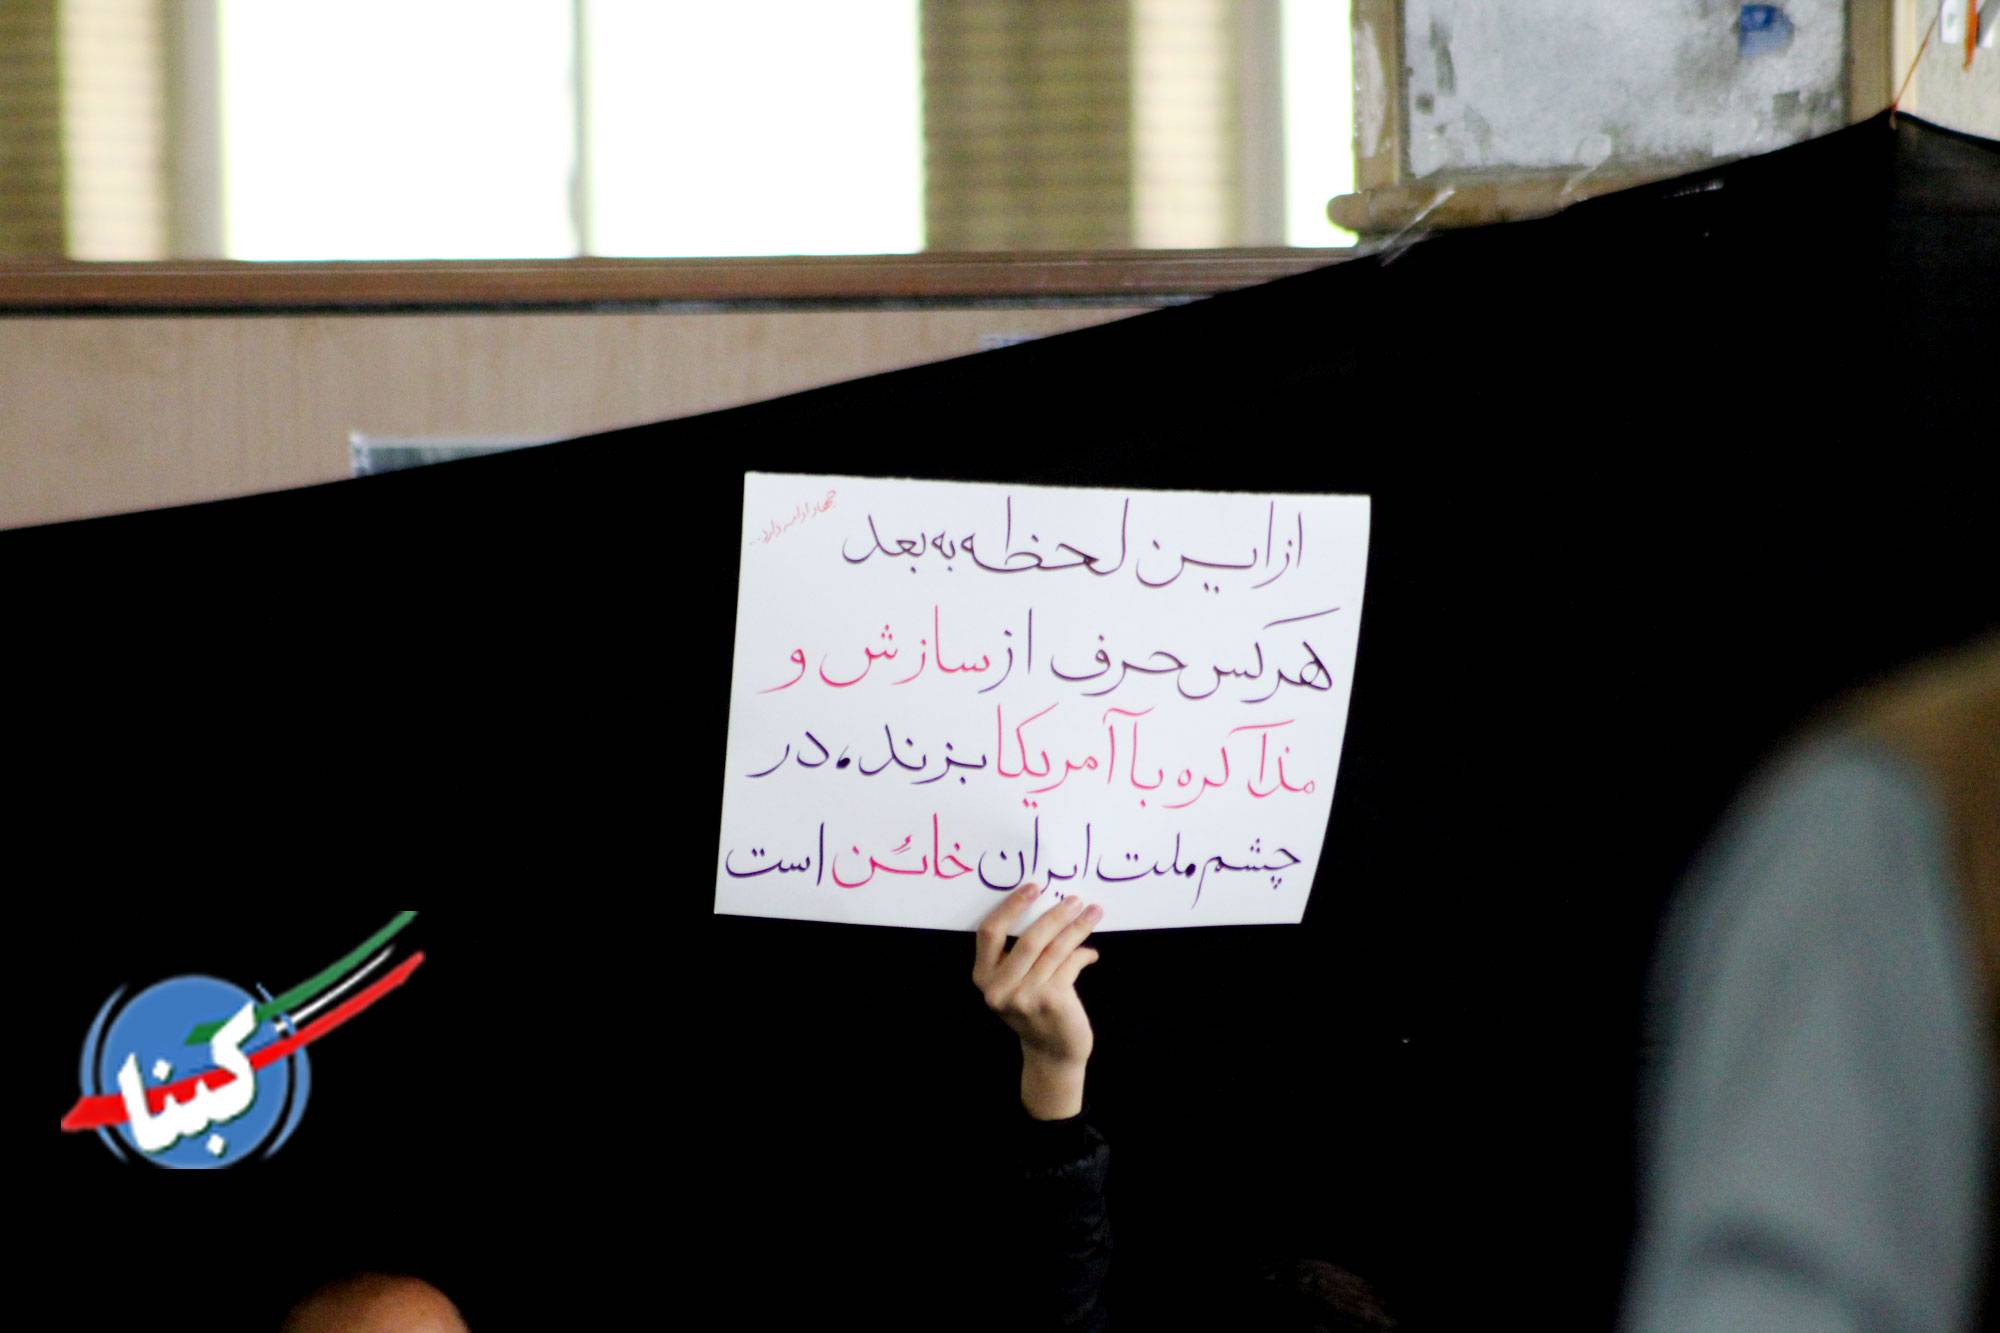 جهاد ادامه دارد...
از این لحظه به بعد
هرکس حرف از سازش و
مذاکره با آمریکا بزند، در
چشم ملت ایران خائن است
کبنا